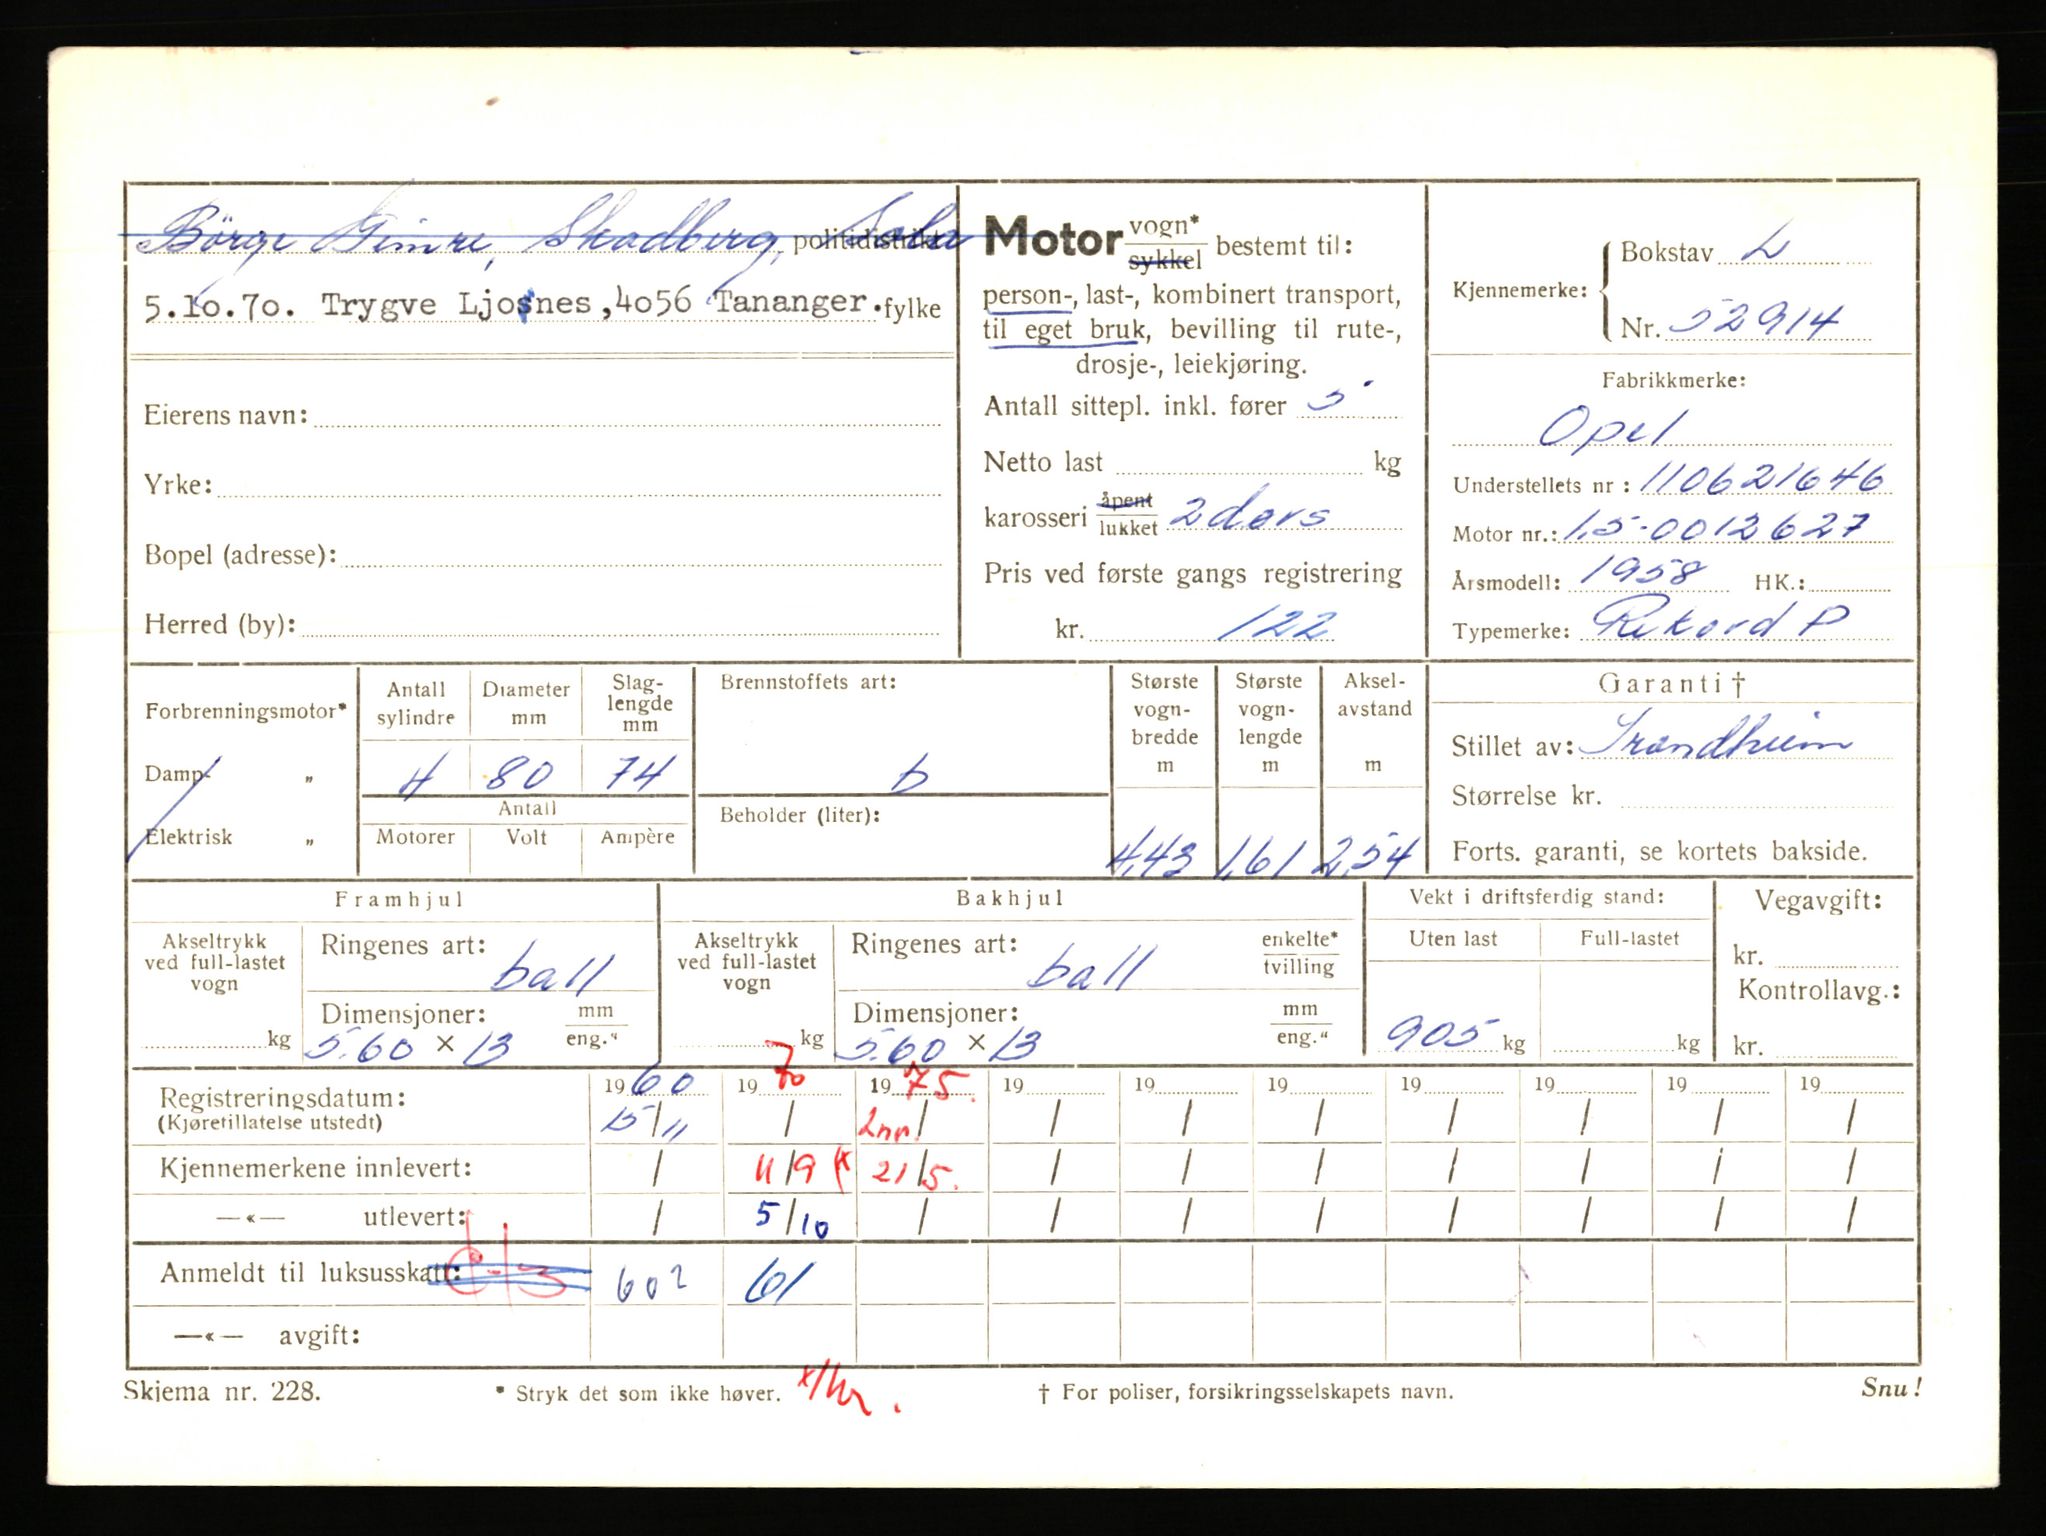 Børge Gimre, Skadberg, Sola politidistrikt
5.10.70. Trygve Ljosnes, 4056 Tananger. fylke
Eierens navn:
Yrke:
Bopel (adresse):
Herred (by):
Motor vogn* sykkel bestemt til:
person-, last-, kombinert transport,
til eget bruk, bevilling til rute-,
drosje-, leiekjøring.
Antall sittepl. inkl. fører 5
Netto last kg
karosseri åpent lukket 2 dørs
Pris ved første gangs registrering
kr. 122
Kjennemerke: Bokstav L
Nr. 52914
Fabrikkmerke:
Opel
Understellets nr: 110621646
Motor nr.: 1,5-0012627
Årsmodell: 1958 HK.:
Typemerke: Rekord P
Forbrenningsmotor*
Damp- "
Elektrisk "
Antall sylindre Diameter mm Slag-lengde mm
4 80 74
Antall
Motorer Volt Ampère
Brennstoffets art:
b
Beholder (liter):
Største vogn-bredde m Største vogn-lengde m Aksel-avstand m
4,43 1,61 2,54
Garanti †
Stillet av: Trondheim
Størrelse kr.
Forts. garanti, se kortets bakside.
Framhjul
Akseltrykk ved full-lastet vogn kg
Ringenes art: ball
Dimensjoner: mm eng."
5.60 × 13
Bakhjul
Akseltrykk ved full-lastet vogn kg
Ringenes art: ball enkelte* tvilling
Dimensjoner: mm eng."
5.60 × 13
Vekt i driftsferdig stand:
Uten last Full-lastet
905 kg kg
Vegavgift:
kr.
Kontrollavg.:
kr.
Registreringsdatum: 1960 1970 1975. 19 19 19 19 19 19 19
(Kjøretillatelse utstedt) 15/11 / 2nn/ / / / / / / /
Kjennemerkene innlevert: / 11/9 (x 21/5. / / / / / / /
—«— utlevert: / 5/10 / / / / / / / /
Anmeldt til luksusskatt: 602 61
—«— avgift:
Skjema nr. 228.
* Stryk det som ikke høver.
† For poliser, forsikringsselskapets navn.
Snu!